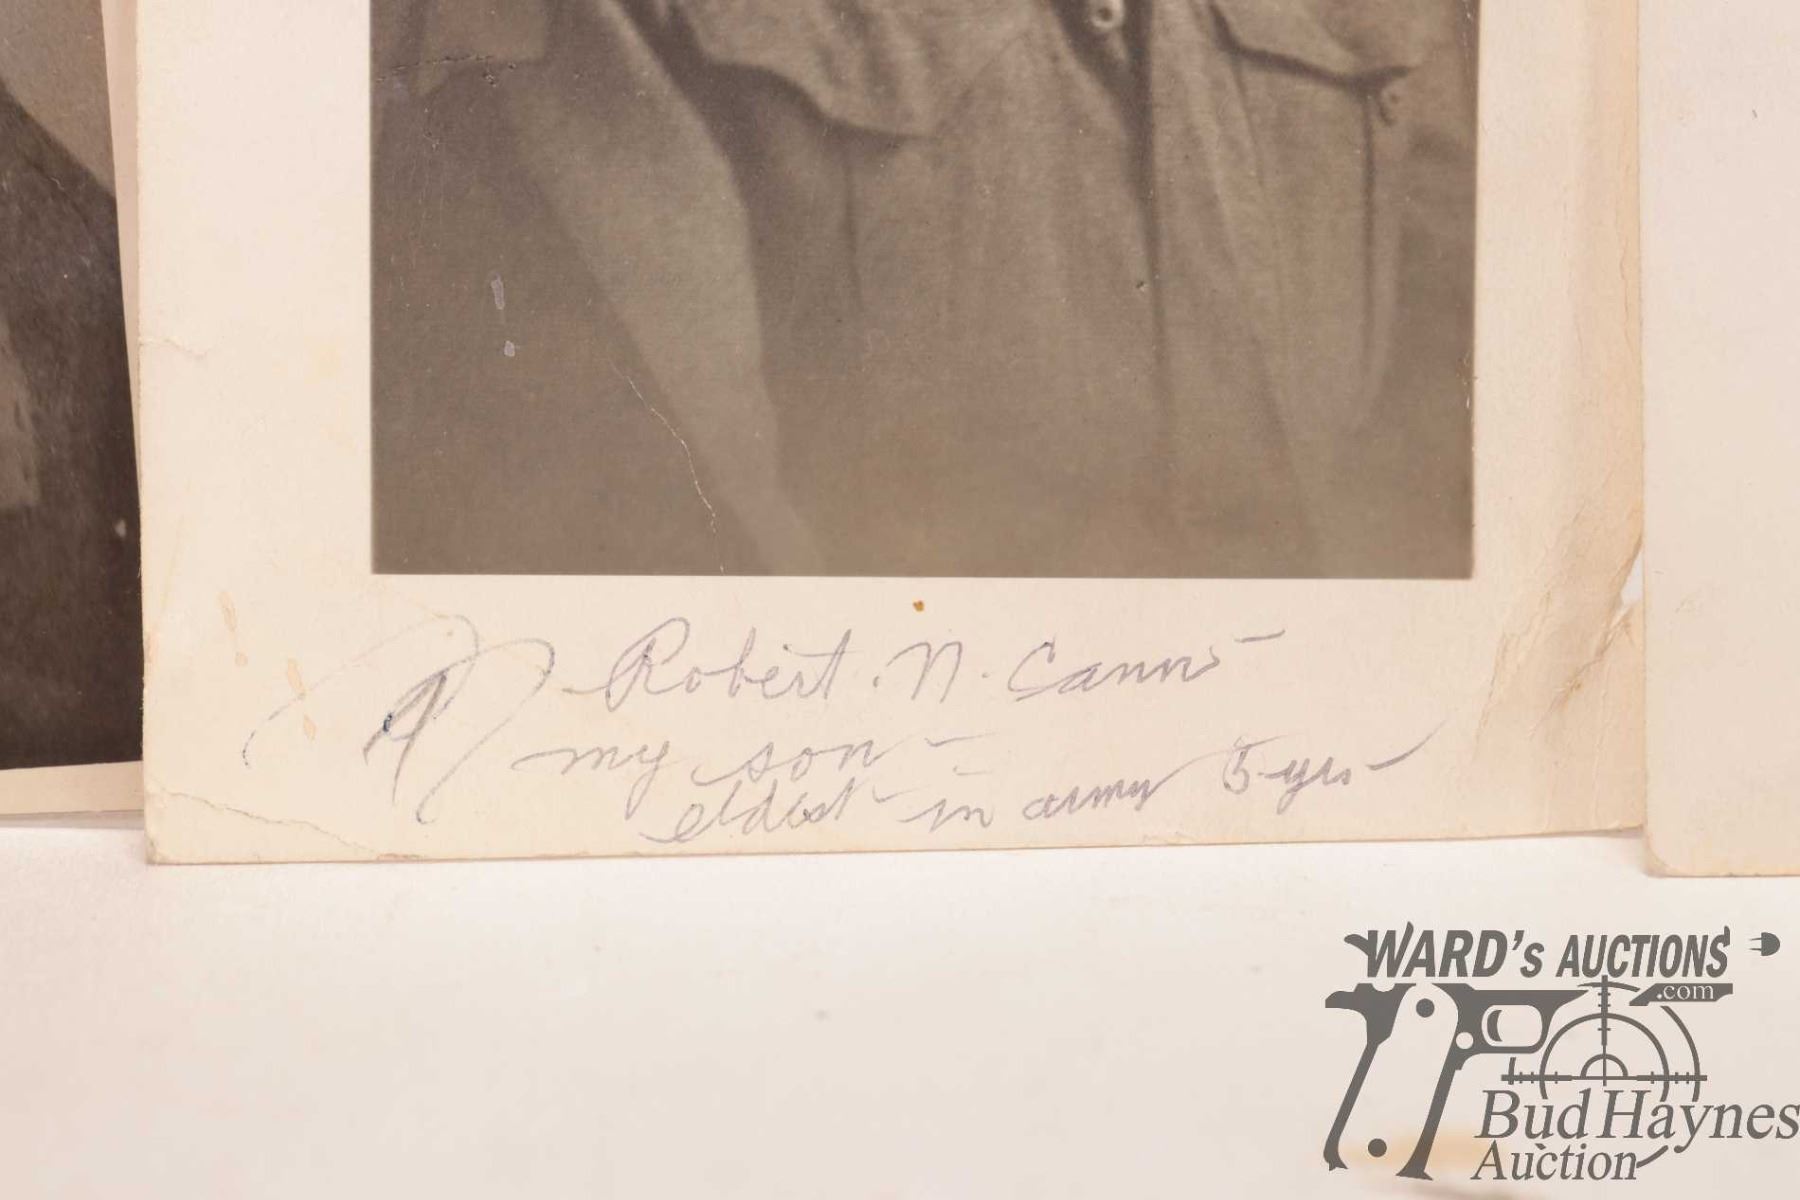 Robert. N. Cann -
my son -
eldest - in army 5 yrs -
WARD's AUCTIONS
.com
Bud Haynes
Auction